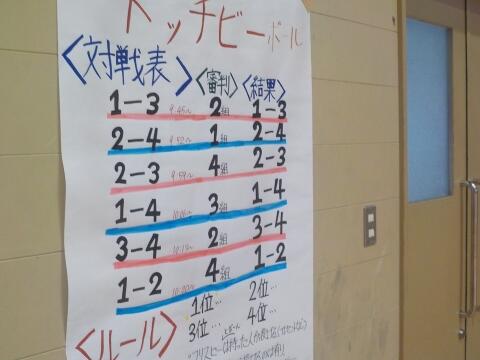 ドッチビーボール
〈対戦表〉〈審判〉〈結果〉
1-3 9:45~ 2組 1-3
2-4 9:52~ 1組 2-4
2-3 9:59~ 4組 2-3
1-4 10:06~ 3組 1-4
3-4 10:13~ 2組 3-4
1-2 10:20~ 4組 1-2
1位… 2位…
3位… 4位…
〈ルール〉